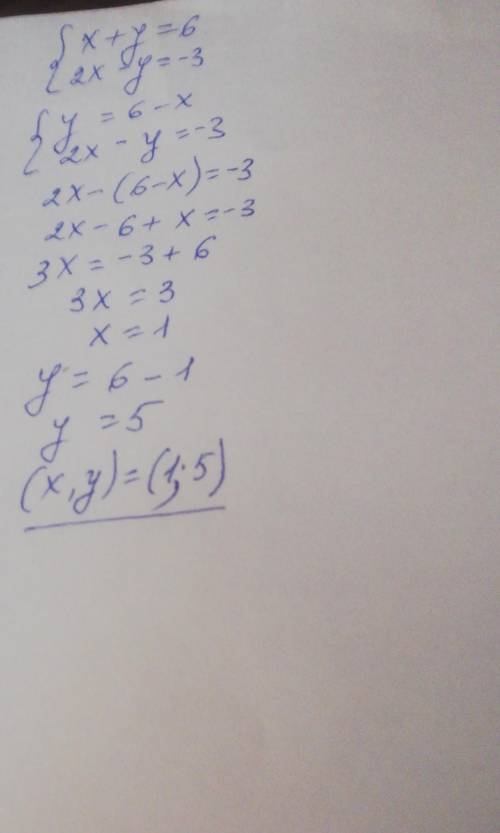 { x + y = 6
2x - y = -3
{ y = 6 - x
2x - y = -3
2x - (6 - x) = -3
2x - 6 + x = -3
3x = -3 + 6
3x = 3
x = 1
y = 6 - 1
y = 5
(x, y) = (1; 5)